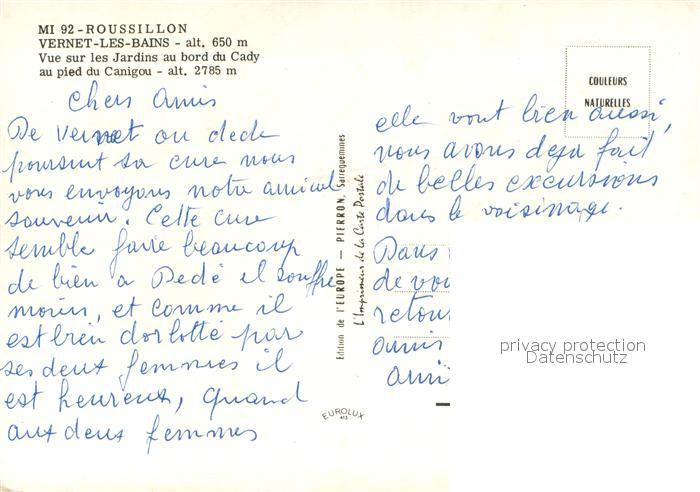 MI 92 - ROUSSILLON
VERNET-LES-BAINS - alt. 650 m
Vue sur les Jardins au bord du Cady
au pied du Canigou - alt. 2785 m
Chers Amis
De Vernet ou dede
poursuit sa cure nous
vous envoyons notre amical
souvenir. Cette cure
semble faire beaucoup
de bien a Dedé el souffre
moins, et comme il
est bien dorlotté par
ses deux femmes il
est heureux, quand
aux deux femmes
Edition de l'EUROPE - PIERRON, Sarreguemines
L'Imprimeur de la Carte Postale
EUROLUX
COULEURS
NATURELLES
elle vont bien aussi,
nous avons deja fait
de belles excursions
dans le voisinage.
Dans
de vou
retour
amis
ami
privacy protection
Datenschutz